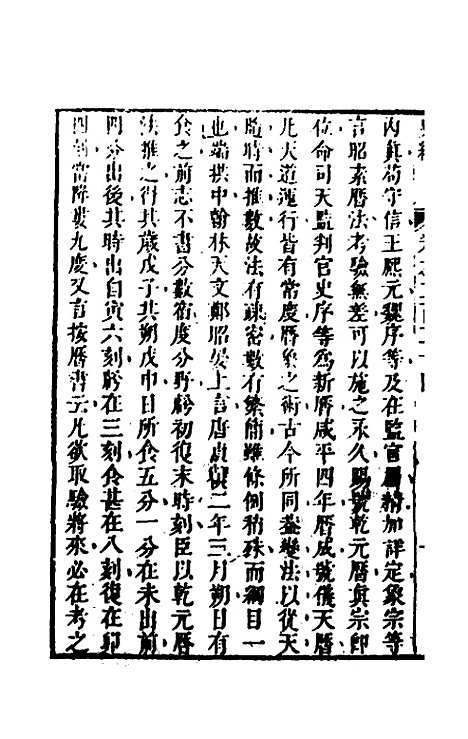 內真苟守信王熙元驟序等及在監官屬精加詳定象宗等
言昭素曆法考驗無差可以施之永久賜號乾元曆眞宗卽
位命司天監判官史序等爲新曆咸平四年曆成號儀天曆
凡天道運行皆有常度曆象之術古今所同蓋變法以從天
隨時而推數故法有疎密數有繁簡雖條例稍殊而綱目一
也端拱中翰林天文鄭昭晏上言唐貞觀二年三月朔日有
食之前志不書分數宿度分野虧初復末時刻臣以乾元曆
法推之得其歲戊子其朔戊申日所食五分一分在未出前
四分出後其時出自寅六刻虧在三刻食甚在八刻復在卯
四刻當降婁九度又言按曆書云凡欲取驗將來必在考之